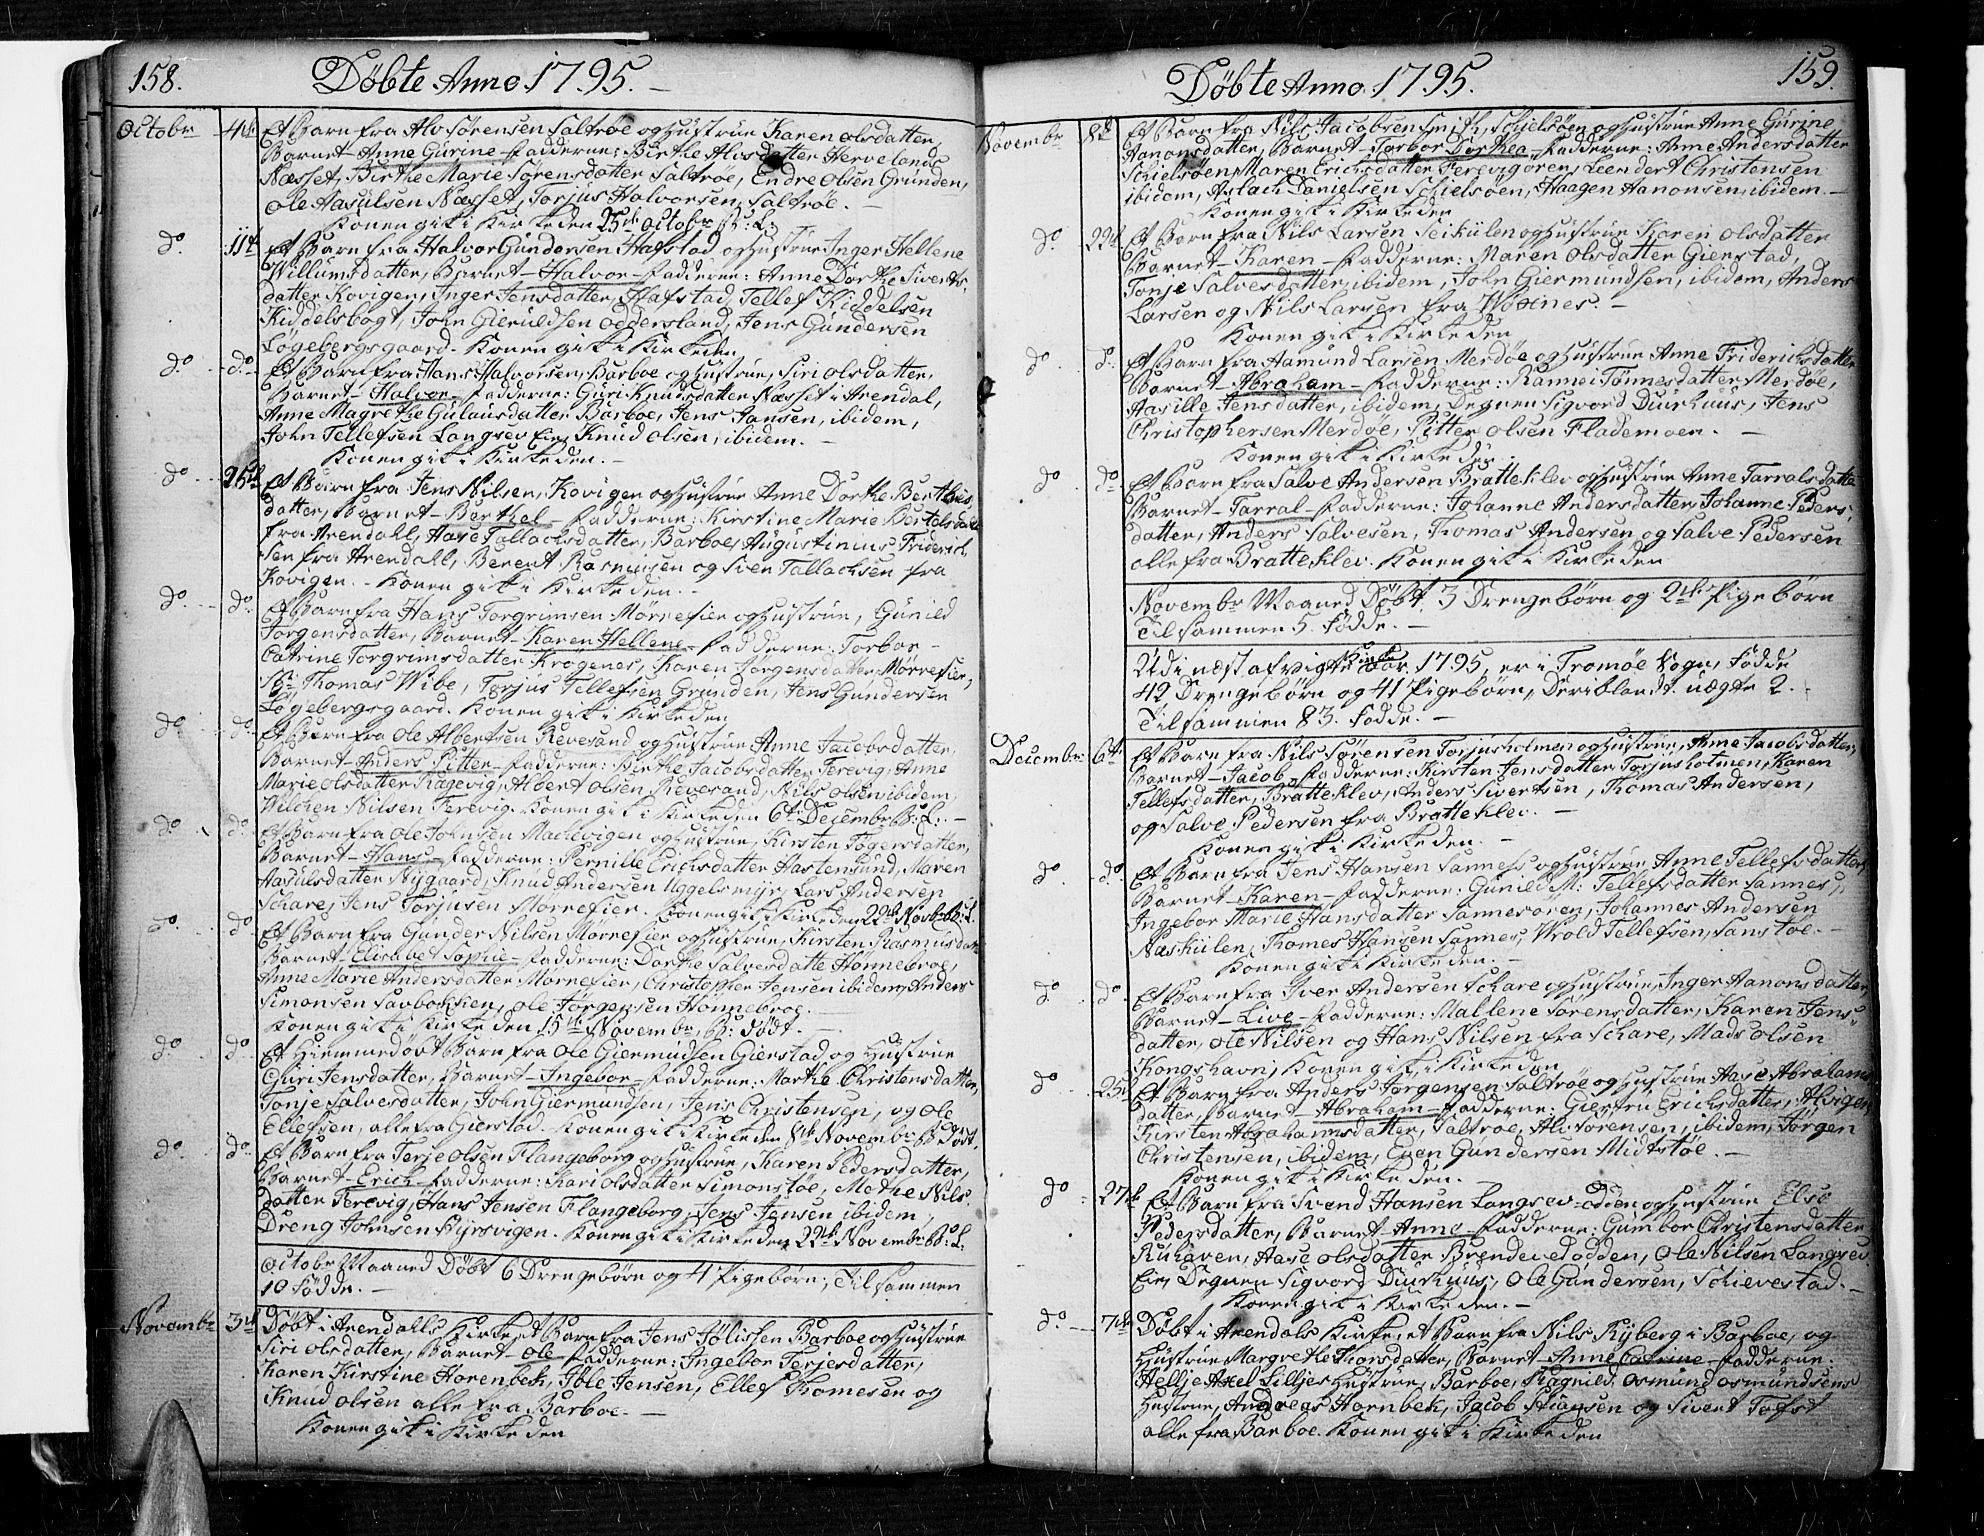 158.
Døbte Anno 1795.
Octobr 4de Et Barn fra Alv Sørensen Saltrøe og Hustrue Karen Olsdatter,
Barnet Anne Gurine Fadderne: Birthe Alvsdatter Hervelands
Næsset, Birthe Marie Sørensdatter Saltrøe, Endre Olsen Grunden,
Ole Aasulsen Næsset, Torjus Halvorsen, Saltrøe.
Konen gik i Kirke den 25de Octobr B: L:
do. 11te Et Barn fra Halvor Gundersen Hafstad og Hustrue Inger Hellene
Willumsdatter, Barnet Halvor Fadderne: Anne Dorthe Siverts-
datter Kovigen, Inger Jensdatter, Hafstad, Tellef Kiddelsen
Kiddelsbogt, John Gieruldsen Oddersland, Jens Gundersen
Løgebergsgaard. Konen gik i Kirke den
do. do. Et Barn fra Hans Halvorsen, Barboe og Hustrue, Siri Olsdatter,
Barnet Halvor Fadderne: Guri Knudsdatter Næsset i Arendal,
Anne Magrethe Gulausdatter Barboe, Jens Jansen, ibidem,
John Tellefsen Langsev Eie, Knud Olsen, ibidem.
Konen gik i Kirke den.
do 25de Et Barn fra Jens Nilsen, Kovigen og Hustrue Anne Dorthe Berthels
datter, Barnet Berthel Fadderne: Kirstine Marie Bertelsdatter
fra Arendall, Aase Tallachsdatter, Barboe, Augustinius Friderich-
sen fra Arendall, Berent Rasmusen og Sven Tallachsen fra
Kovigen. Konen gik i Kirke den.
do do. Et Barn fra Hans Torgrimsen Mørrefier og Hustrue, Gunild
Jørgensdatter, Barnet Karen Hellene Fadderne: Torbor
Catrine Torgrimsdatter Krøgenes, Karen Jørgensdatter Mørrefier,
Sr: Thomas Wibe, Torjus Tellefsen Grunden, Jens Gundersen
Løgebergsgaard. Konen gik i Kirke den
do do. Et Barn fra Ole Albertsen Revesand og Hustrue Anne Jacobsdatter,
Barnet Anders Pitter Fadderne: Birthe Jacobsdatter Ferevig, Anne
Marie Olsdatter Ragevig, Albert Olsen, Revesand, Nils Olsen ibidem,
Wilchen Nilsen Ferevig. Konen gik i Kirke den 6te Decembr B: L:
do. do. Et Barn fra Ole Johnsen Madsvigen og Hustrue, Kirsten Togersdatter,
Barnet Hans Fadderne: Pernille Erichsdatter Hastensund, Maren
Aasulsdatter Nygaard, Knud Andersen Uggelsmyr, Lars Andersen
Schare, Jens Torjusen Mørrefier. Konen gik i Kirke den 22de Novbr B: L:
do. do. Et Barn fra Gunder Nilsen Mørrefier og Hustrue, Kirsten Rasmusdatter
Barnet Elisabet Sophie Fadderne: Dorthe Salvesdatte Hønnebroe,
Anne Marie Andersdatter Mørrefier, Christopher Jensen ibidem, Anders
Simonsen Savbokken, Ole Jørgensen Hønnebroe.
Konen gik i Kirke den 15de Novembr, B: Født.
do. do. Et Hiemmedøbt Barn fra Ole Giermudsen Gierstad og Hustrue
Guri Jensdatter, Barnet Ingebor Fadderne: Marthe Christensdatter
Tonje Salvesdatter, John Giermundsen, Jens Christensen, og Ole
Ellefsen, alle fra Gierstad. Konen gik i Kirke den 8de Novembr B: Født.
do. do. Et Barn fra Terje Olsen Flangeborg og Hustrue, Karen Pedersdatter,
Barnet Erich Fadderne: Kari Olsdatter Simonstøe, Methe Nils
datter Ferevig, Hans Jensen Flangeborg, Jens Jensen ibidem,
Dreng Johnsen Kyrvigen. Konen gik i Kirke den 22de Novembr B: L:
Octobr Maaned Døbt 6 Drengebørn og 4 Pigebørn, Tilsammen
10 Fødde.
Novembr 3de Døbt i Arendalls Kirke et Barn fra Jens Jølissen Barboe og Hustrue
Siri Olsdatter, Barnet Ole Fadderne: Ingebor Terjesdatter,
Karen Kirstine Horenbek, Ible Jensen, Ellef Thomesen og
Knud Olsen alle fra Barboe.
Konen gik i Kirke den
159.
Døbte Anno 1795.
Novembr 8de Et Barn fra Nils Jacobsen Smith, Schielsøen og Hustrue Anne Gurine
Aanonsdatter, Barnet Torbor Dorthea Fadderne: Anne Andersdatter
Schielsøen, Maren Erichsdatter Ferevigøren, Leendert Christensen
ibidem, Aslach Danielsen Schielsøen, Haagen Aanonsen, ibidem.
Konen gik i Kirke den
do. 22de Et Barn fra Nils Larsen Seikulen og Hustrue Karen Olsdatter
Barnet Karen Fadderne: Maren Olsdatter Gierstad,
Tonje Salvesdatter, ibidem, John Giermundsen, ibidem, Anders
Larsen og Nils Larsen fra Woxnes.
Konen gik i Kirke den
do. do. Et Barn fra Aamund Larsen Merdøe og Hustrue Anne Friderichsdatter
Barnet Abraham Fadderne: Rannei Tønnesdatter Merdøe,
Aasille Jensdatter, ibidem, Degnen Sigvard Duurhuus, Jens
Christophersen Merdøe, Pitter Olsen Flademoen.
Konen gik i Kirke den.
do. do. Et Barn fra Salve Andersen Bratteklev og Hustrue Anne Tarralsdatter
Barnet Tarral Fadderne: Johanne Andersdatter, Johanne Peders
datter, Anders Salvesen, Thomas Andersen og Salve Pedersen
alle fra Bratteklev. Konen gik i Kirke den
Novembr Maaned Døbt, 3 Drengebørn og 2de Pigebørn
Tilsammen 5. Fødde.
Udi næstafvigte Kirke Aar 1795, er i Tromøe Sogn, Fødde
42 Drengebørn og 41 Pigebørn, Deriblandt uægte 2.
Tilsammen 83. Fødde.
Decembr 6te Et Barn fra Nils Sørensen Torjusholmen og Hustrue, Anne Jacobsdatter,
Barnet Jacob, Fadderne: Kirsten Jensdatter Torjusholmen, Karen
Tellefsdatter, Bratteklev, Anders Sivertsen, Thomas Andersen,
og Salve Pedersen fra Bratteklev.
Konen gik i Kirke den.
do do. Et Barn fra Jens Hansen Sannes og Hustrue Anne Tellefsdatter
Barnet Karen Fadderne: Gunild M: Tellefsdatter Sannes,
Ingebor Marie Hansdatter Sannesøren, Johannes Andersen
Næskiilen, Thomes Hansen Sannes, Wrold Tellefsen, Sanstøe.
Konen gik i Kirke den.
do do. Et Barn fra Iver Andersen Schare og Hustrue, Inger Aanonsdatter,
Barnet Live Fadderne: Mallene Sørensdatter, Karen Jens-
datter, Ole Nilsen og Hans Nilsen fra Schare, Mads Olsen
Kongshavn, Konen gik i Kirke den
do 25de Et Barn fra Anders Jørgensen Saltrøe og Hustrue Aase Abrahams
datter, Barnet Abraham Fadderne: Giertru Erichsdatter, Alvigen
Kirsten Abrahamsdatter, Saltrøe, Alv Sørensen, ibidem, Jørgen
Christensen, ibidem, Even Gundersen Midtstøe.
Konen gik i Kirke den.
do 27de Et Barn fra Svend Hansen Langsev-Odden og Hustrue Else
Pedersdatter, Barnet Anne Fadderne: Gumbor Christensdatter
Ruhaven, Aase Olsdatter Brendevedodden, Ole Nilsen Langsev
Eie, Degnen Sigvord Duurhuus, Ole Gundersen, Schievestad.
Konen gik i Kirke den.
do 7de Døbt i Arendals Kirke et Barn fra Nils Ryberg i Barboe, og
Hustrue Margrethe Thorsdatter, Barnet Anne Catrine Fadderne.
Hellje Axel Lilljes Hustrue, Barboe, Ragnild Osmund Osmundsens
Hustrue, Andreas Hornbek, Jacob Stiansen og Sivert Tofst
alle fra Barboe. Konen gik i Kirke den